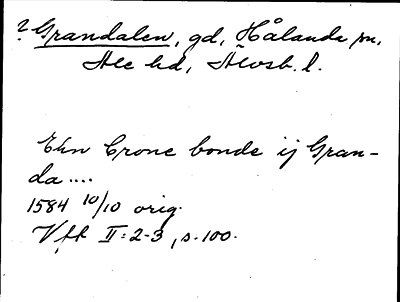 ? Grandalen, gd, Hålanda sn,
Ale hd, Älvsb. l.
Een Crone bonde ij Gran-
da....
1584 10/10 orig.
Vfr II:2-3, s. 100.